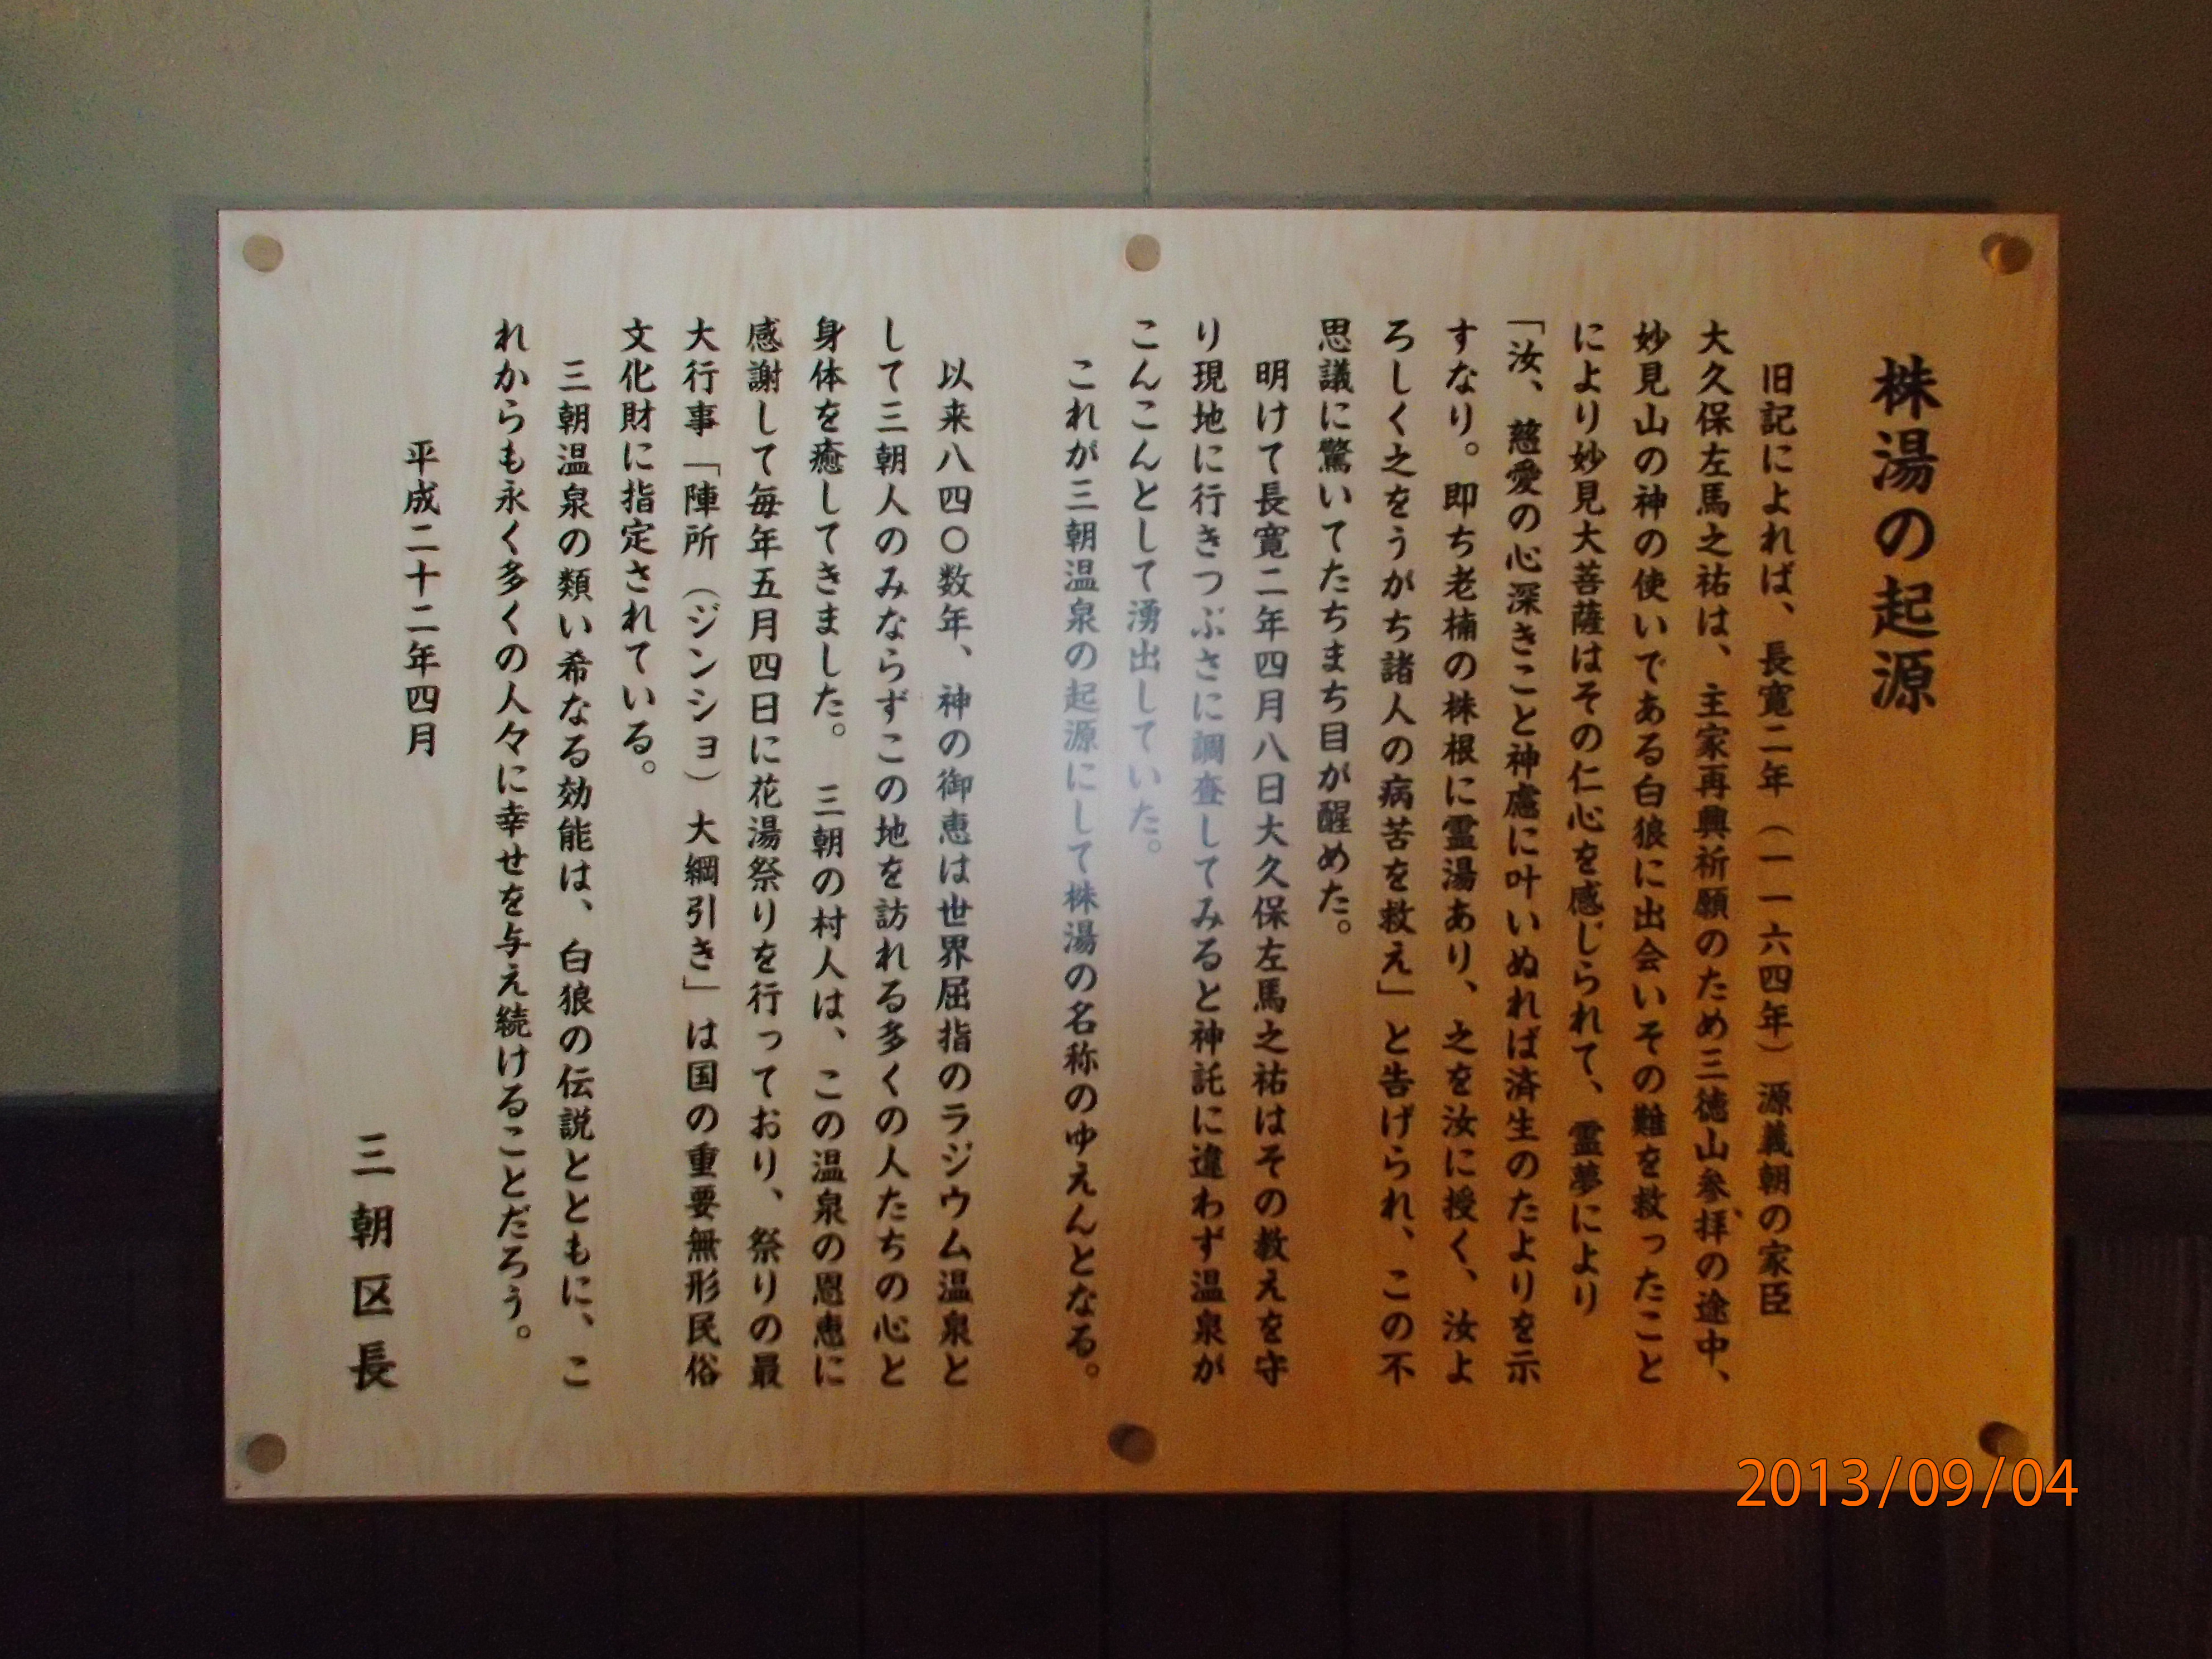 株湯の起源
旧記によれば、長寛二年（一一六四年）源義朝の家臣
大久保左馬之祐は、主家再興祈願のため三徳山参拝の途中、
妙見山の神の使いである白狼に出会いその難を救ったこと
により妙見大菩薩はその仁心を感じられて、霊夢により
「汝、慈愛の心深きこと神慮に叶いぬれば済生のたよりを示
すなり。即ち老楠の株根に霊湯あり、之を汝に授く、汝よ
ろしく之をうがち諸人の病苦を救え」と告げられ、この不
思議に驚いてたちまち目が醒めた。
明けて長寛二年四月八日大久保左馬之祐はその教えを守
り現地に行きつぶさに調査してみると神託に違わず温泉が
こんこんとして湧出していた。
これが三朝温泉の起源にして株湯の名称のゆえんとなる。
以来八四〇数年、神の御恵は世界屈指のラジウム温泉と
して三朝人のみならずこの地を訪れる多くの人たちの心と
身体を癒してきました。三朝の村人は、この温泉の恩恵に
感謝して毎年五月四日に花湯祭りを行っており、祭りの最
大行事「陣所（ジンショ）大綱引き」は国の重要無形民俗
文化財に指定されている。
三朝温泉の類い希なる効能は、白狼の伝説とともに、こ
れからも永く多くの人々に幸せを与え続けることだろう。
平成二十二年四月
三朝区長
2013/09/04